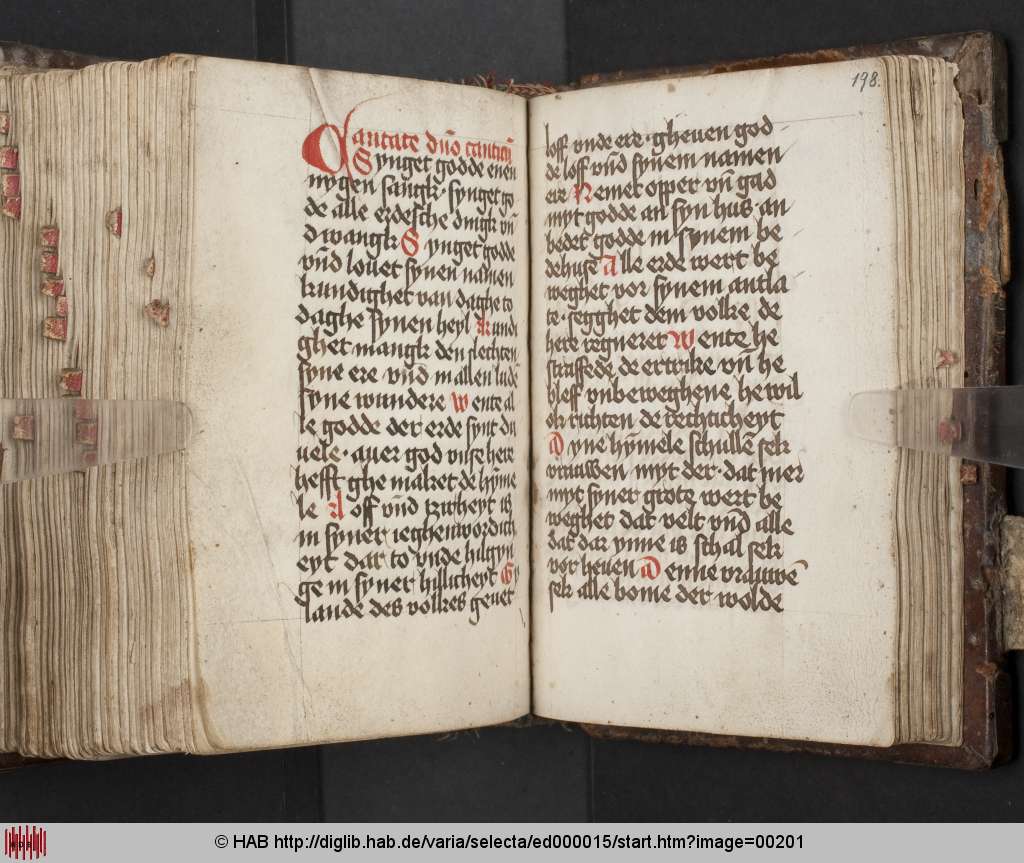 Cantate dn̄o canticū
Synget godde enen
nygen sangk · synget go
de alle erdesche dingk vn̄
dwangk Synget godde
vn̄d louet synen namen
kundighet van daghe to
daghe synen heyl Kundi
ghet mangk den slechten
syne ere vn̄d in allen ludē
syne wundere Wente al
le godde der erde synt du
uele · auer god vnse here
hefft ghemaket de hȳme
le Loff vn̄d tzirheyt is
in syner ieghenwordich
eyt dat to vnde hilgyn
ge in syner hillicheyt Gy
lande des volkes geuet
198.
loff vnde ere · gheuen god
de loff vn̄d synem namen
ere Nemet opper vn̄ gad
myt godde an syn hus an
bedet godde in synem be
dehuse Alle erde wert be
weghet vor synem antla
te · segghet dem volke, de
here regneret Wente he
straffede de ertrike vn̄ he
bleff vnbeweghene, he wil
ok richten de rechticheyt
Dyne hȳmele schullē sek
vrauwen myt der · dat mer
myt syner grote wert be
weghet dat velt vn̄d alle
dat dar ynne is schal sek
vorheuen Denne vrauwē
sek alle bome der wolde
© HAB http://diglib.hab.de/varia/selecta/ed000015/start.htm?image=00201